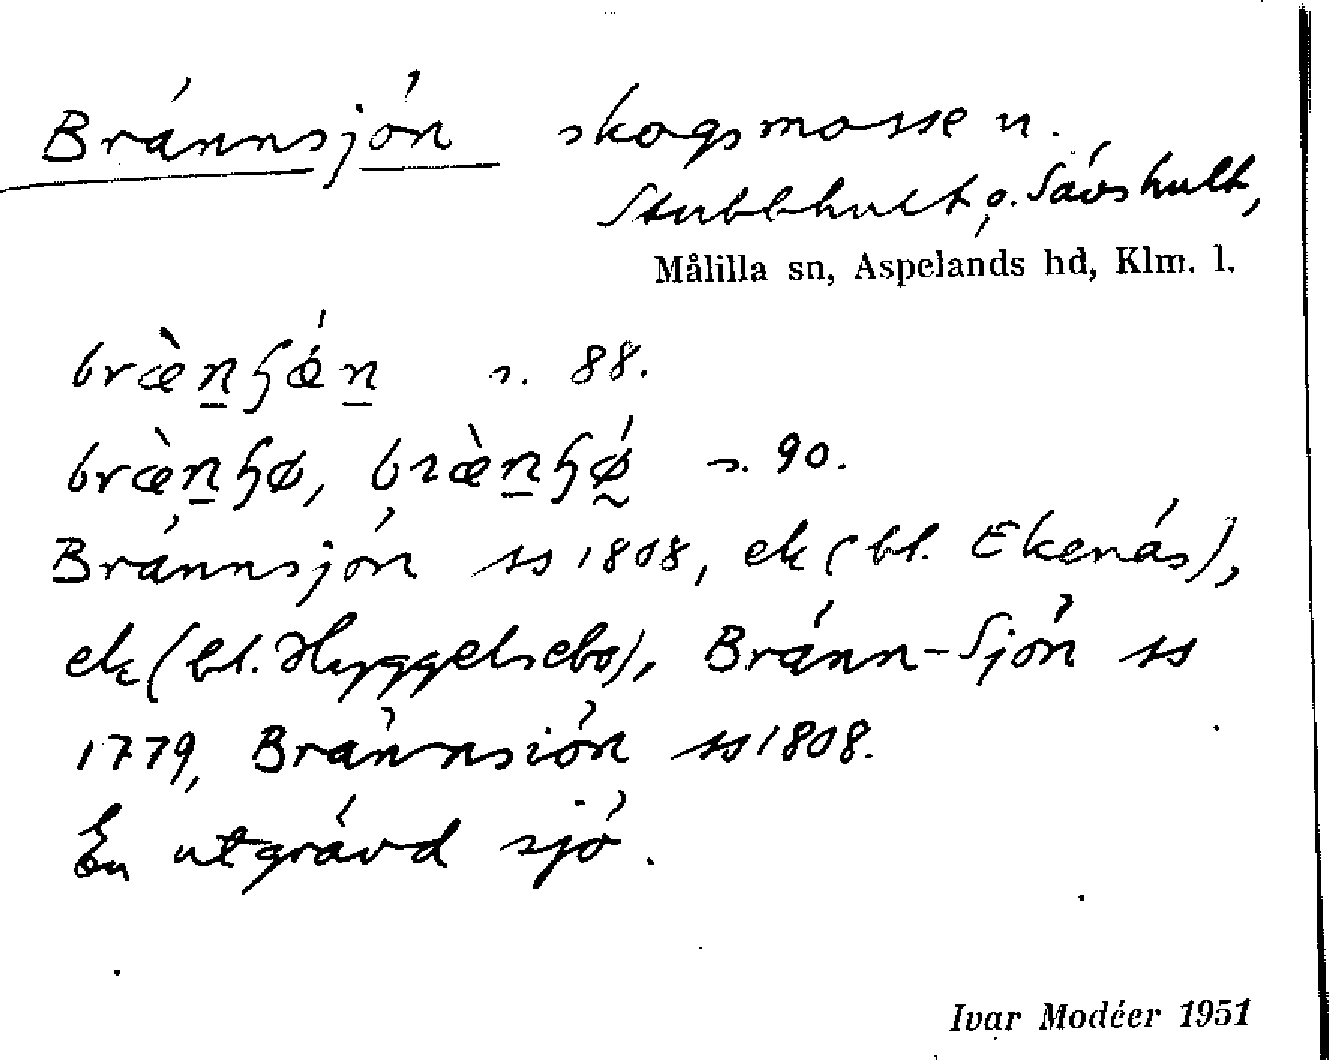 Brännsjön skogsmosse u.
Stubbhult o. Sävshult,
Målilla sn, Aspelands hd, Klm. l.
s. 88.
s. 90.
Brännsjön ss 1808, ek (bl. Ekenäs),
ek (bl. Hyggelsebo), Bränn-Sjön ss
1779, Brännsiön ss 1808.
En utgrävd sjö.
Ivar Modéer 1951